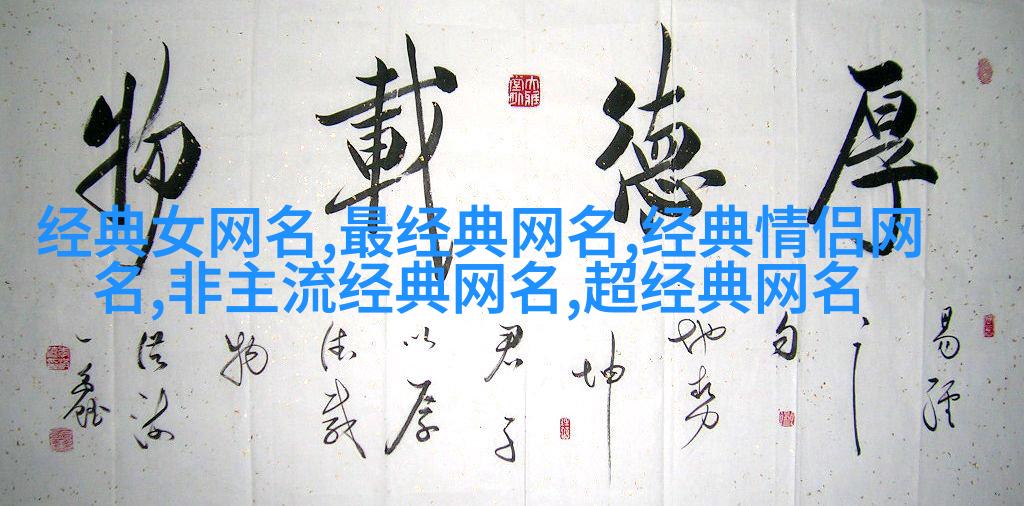 厚德載物
经典女网名,最经典网名,经典情侣网
名,非主流经典网名,超经典网名
易經
之
句
地勢
坤
君子
以厚
德載
物